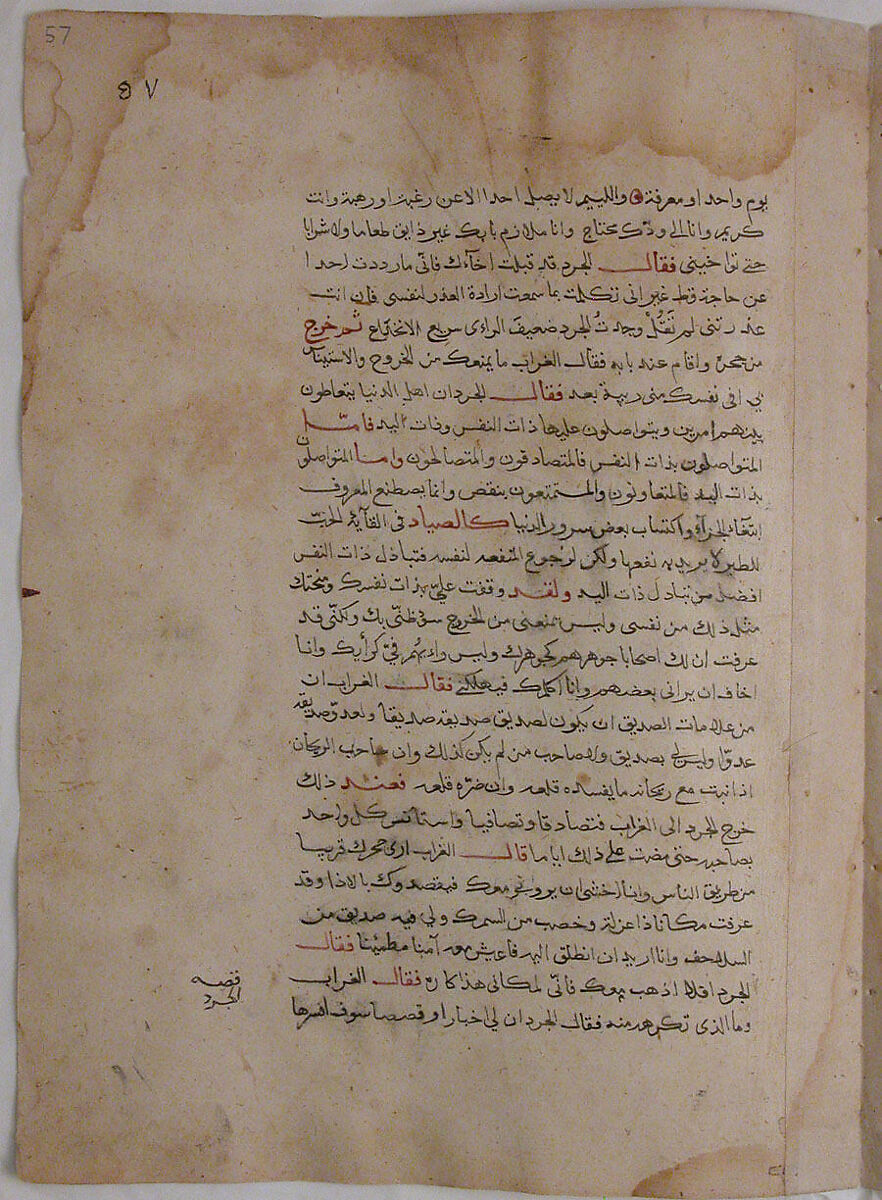 57
٥٧
يوم واحد او معرفة واللييم لا يصل احدا الا عن رغبة او رهبة وانت
كريم وانا الى ودّك محتاج وانا ملازم بابك غير ذايق طعاما ولا شرابا
حتى تواخيني فقال الجرد قد قبلت اخآءك فانّي ما رددت احدا
عن حاجة قط غير انى تكلمت بما سمعت ارادة العذر لنفسى فان انت
غدرتنى لم تَقُلْ وجدتُ الجرد ضعيفَ الراءى سريع الانخداع ثم خرج
من جحره واقام عند بابه فقال الغراب ما يمنعك من الخروج والاستيناس
بي افى نفسك منى ريبة بعد فقال الجرد ان اهل الدنيا يتعاطون
بينهم امرين ويتواصلون عليها ذات النفس وذات اليد فامّا
المتواصلون بذات النفس فالمتصادقون والمتصالحون واما المتواصلون
بذات اليد فالمتعاونون والمستمتعون وانما يصطنع المعروف
ابتغاء الجزآء واكتساب بعض سرور الدنيا كالصياد فى القآية الحبّ
للطير لا يريد به نفعها ولكن لرجوع المنفعه لنفسه فتباذل ذات النفس
افضل من تباذل ذات اليد ولقد وقفت عليّ بذات نفسك ومنحتك
مثل ذلك من نفسى وليس يمنعنى من الخروج سؤ ظنّى بك ولكنّى قد
عرفت ان لك اصحابا جوهرهم كجوهرك وليس راءيهم فيّ كرأيك وانا
اخاف ان يرانى بعضهم وانا فيهلكنى فقال الغراب ان
من علامات الصديق ان يكون لصديق صديقه صديقا ولعدوّ صديقه
عدوّا وليس لي بصديق ولا صاحب من لم يكن كذلك وان صاحب الريحان
اذا نبت مع ريحانه ما يفسده قلعه وان ضرّه قلعه فعند ذلك
خرج الجرد الى الغراب فتصادقا وتصافيا واستأنس كل واحد
بصاحبه حتى مضت على ذلك اياما قال الغراب ارى جحرك قريبا
من طريق الناس وانا اخشى ان يرونى معك فيقصدوك بالاذا وقد
عرفت مكانا ذا عزلة وخصب من السمك ولي فيه صديق من
السلاحف وانا اريد ان انطلق اليه فاعيش معه آمنا مطمئنا فقال
الجرد افلا اذهب معك فانّى لمكانى هذا كاره فقال الغراب
وما الذى تكرهه منه فقال الجرد ان لي اخبار او قصصا سوف افسرها
قصه
الجرد